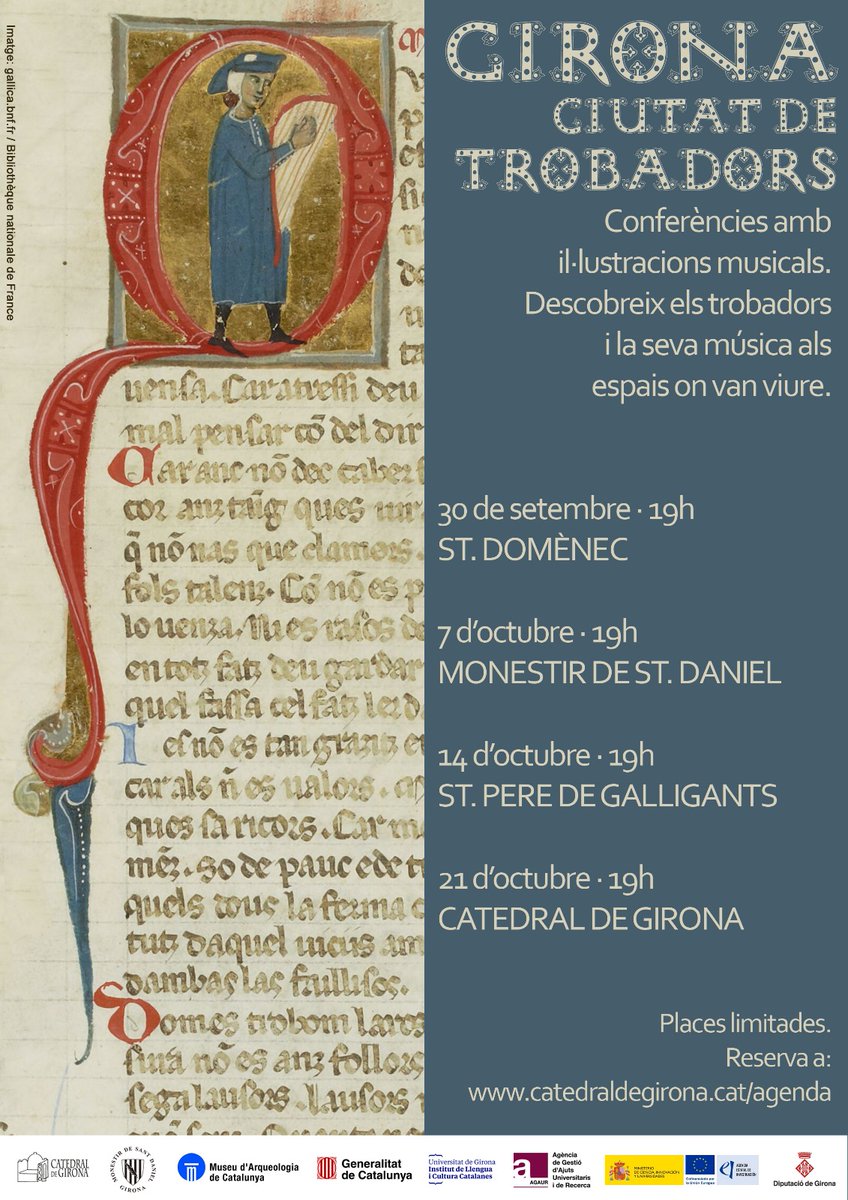 Imatge: gallica.bnf.fr / Bibliothèque nationale de France
GIRONA
CIUTAT DE
TROBADORS
Conferències amb
il·lustracions musicals.
Descobreix els trobadors
i la seva música als
espais on van viure.
30 de setembre · 19h
ST. DOMÈNEC
7 d'octubre · 19h
MONESTIR DE ST. DANIEL
14 d'octubre · 19h
ST. PERE DE GALLIGANTS
21 d'octubre · 19h
CATEDRAL DE GIRONA
Places limitades.
Reserva a:
www.catedraldegirona.cat/agenda
uensa. Car atressi deu
mal pensar cō del dir
Car anc nō dec caber
cor anz taīg ques
q̄ nō nas que clamors.
fols talenz. Cō nō es p
lo uenza. Ni es rasos de
en totz fatz deu gardar
quel fassa cel fatz
Ies nō es tan grantz e
car als ñ es ualors.
ques sa ricors. Car
mēz. So de pauc e de t
quels tous la ferma c
tutz daquel uicus am
dambas las
CATEDRAL
DE GIRONA
MONESTIR DE SANT DANIEL
GIRONA
Museu d'Arqueologia
de Catalunya
Generalitat
de Catalunya
Universitat de Girona
Institut de Llengua
i Cultura Catalanes
AGAUR
Agència
de Gestió
d'Ajuts
Universitaris
i de Recerca
MINISTERIO
DE CIENCIA, INNOVACIÓN
Y UNIVERSIDADES
Cofinanciado por
la Unión Europea
AGENCIA
ESTATAL DE
INVESTIGACIÓN
Diputació de Girona